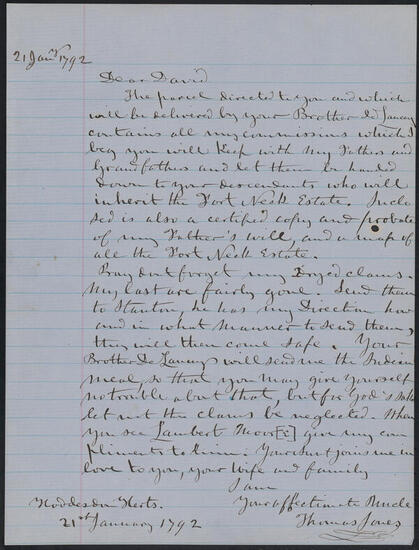 21 Jany 1792
Dear David
The parcel directed to you and which
will be delivered by your Brother De Lancey
contains all my commissions which I
beg you will keep with my Fathers and
Grandfathers and let them be handed
down to your descendants who will
inherit the Fort Neck Estate. Inclo
sed is also a certified copy and probate
of my Father's will, and a map of
all the Fort Neck Estate.
Pray dont forget my Dryed clams.
My last are fairly gone. Send them
to Stanton, he has my Direction how
and in what manner to send them,
they will then come safe. Your
Brother De Lancey will send me the Indian
meal, so that you may give yourself
no trouble about that, but for God's sake
let not the clams be neglected. When
you see Lambert Moor[e] give my com
pliments to him. Your Aunt joins me in
love to you, your Wife and family
I am
Your affectionate Uncle
Hoddesdon Herts.
Thomas Jones
21st January 1792